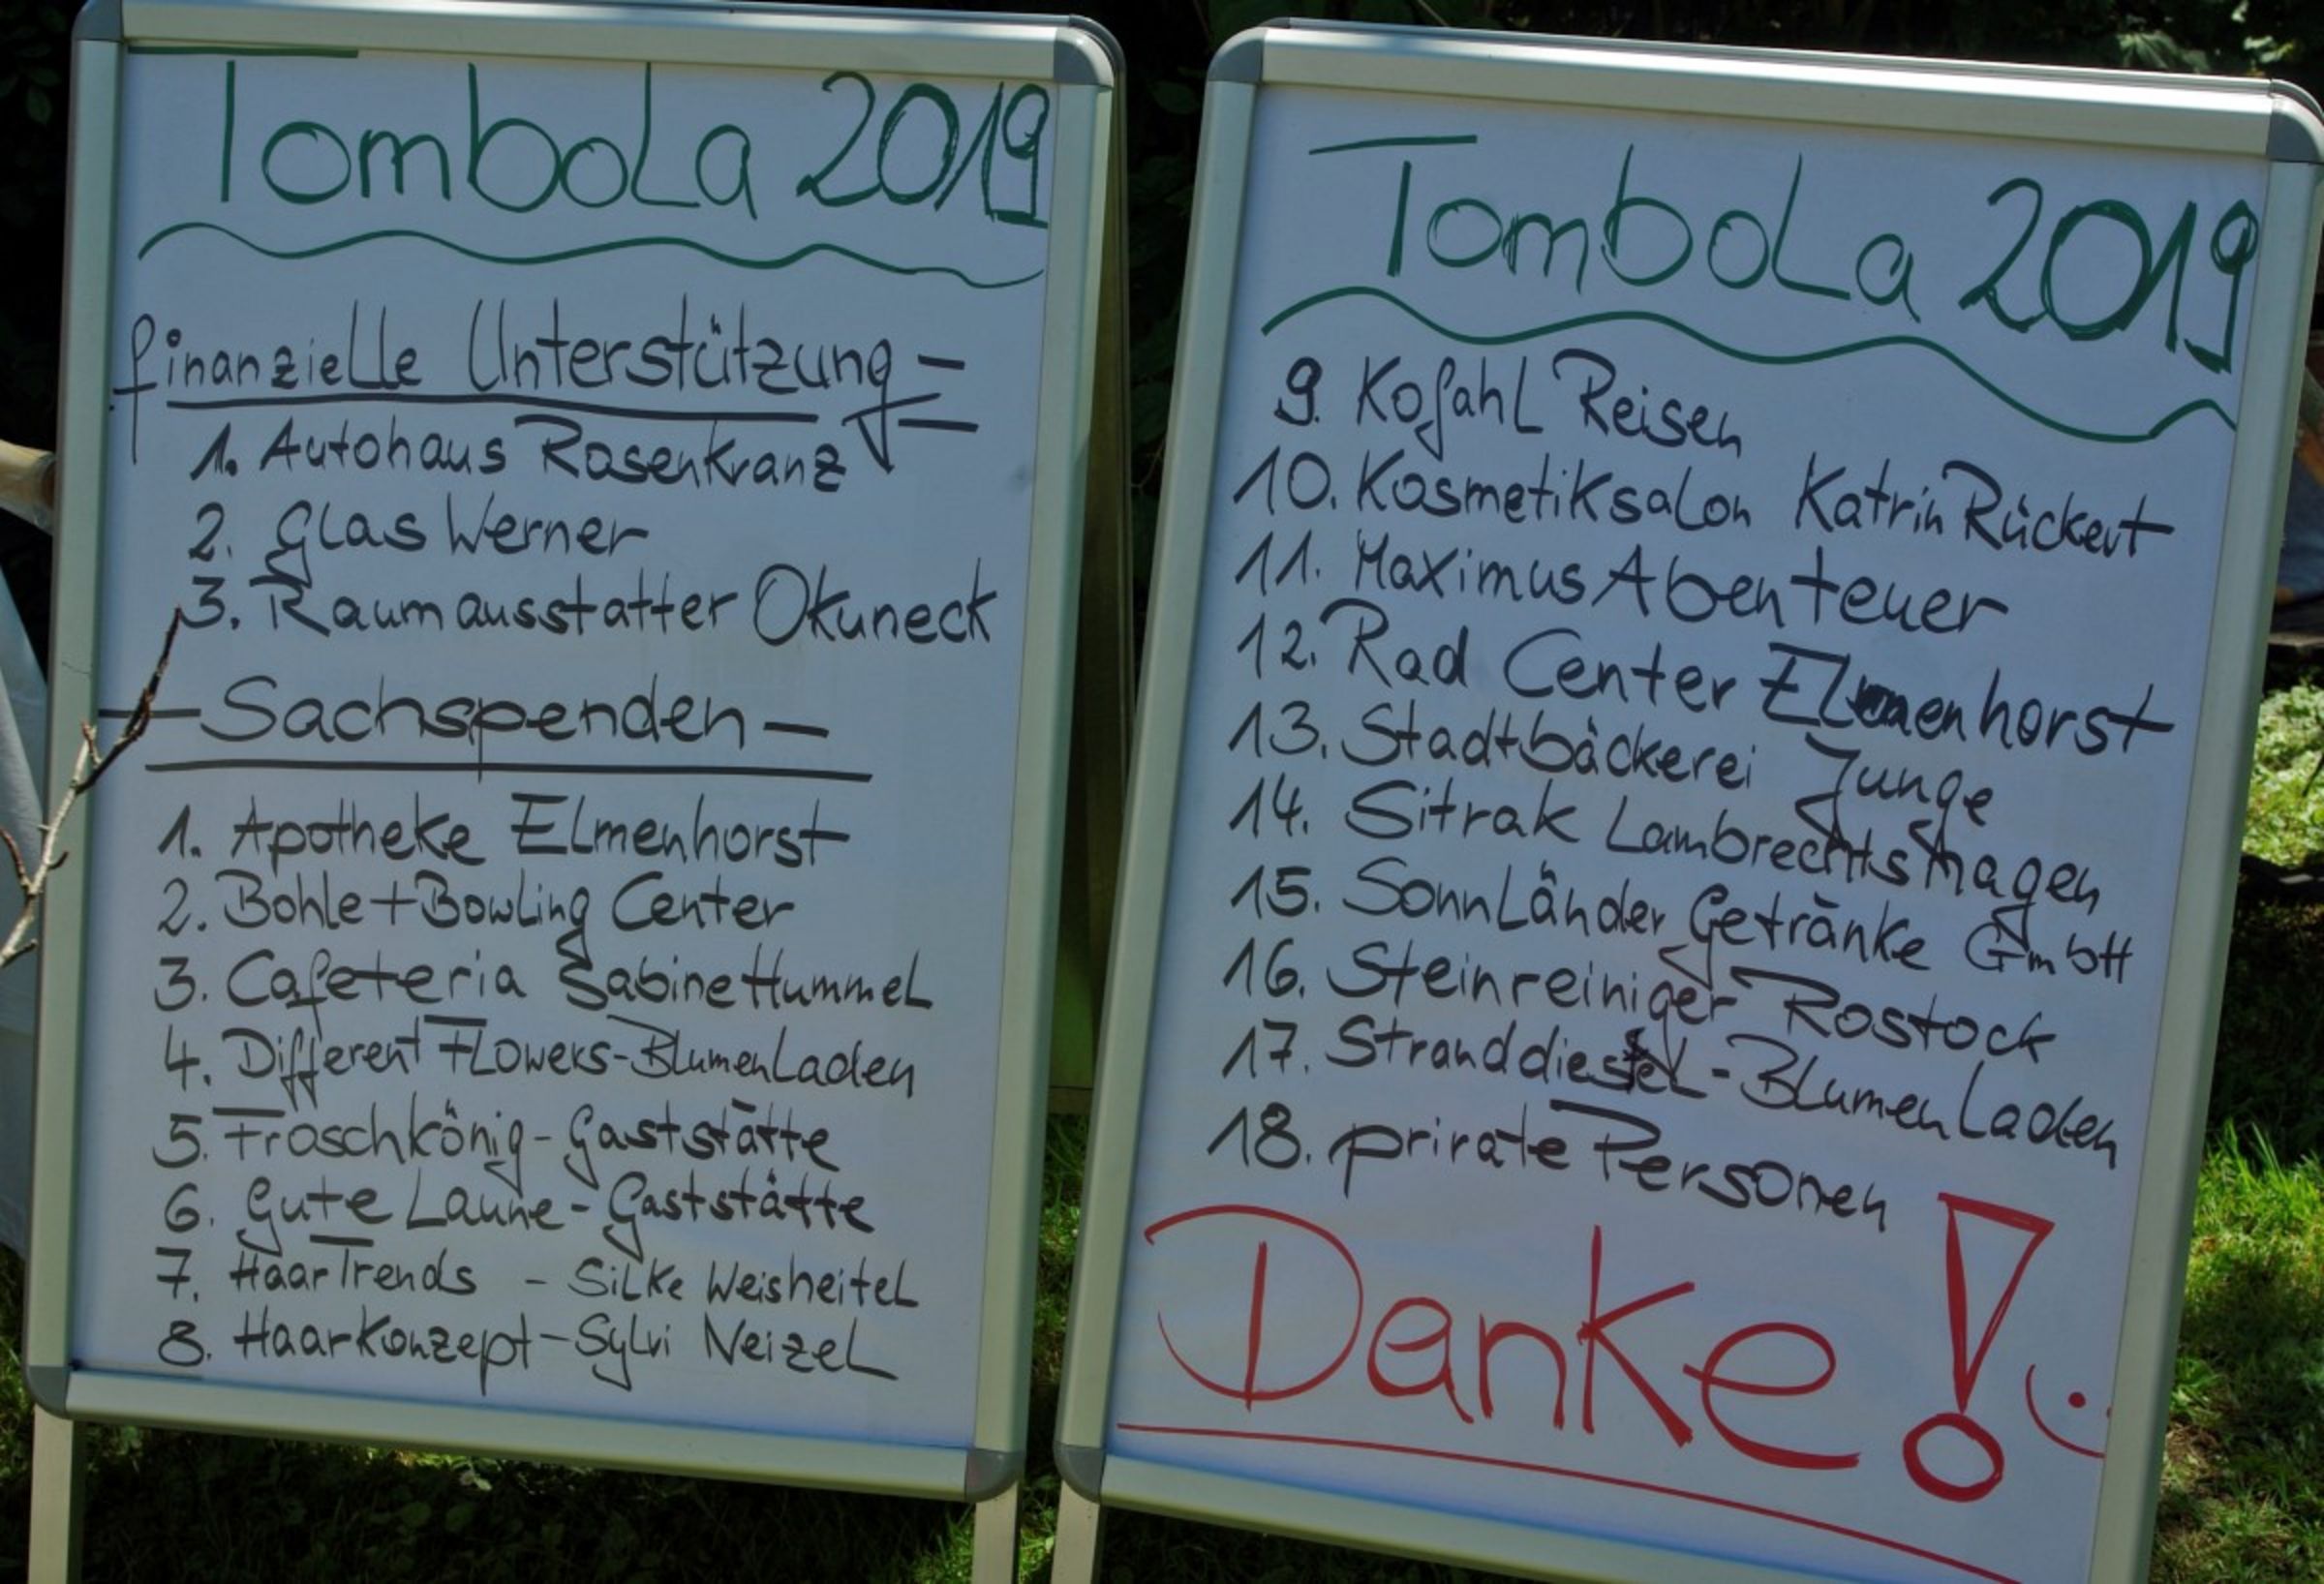 Tombola 2019
finanzielle Unterstützung -
1. Autohaus Rosenkranz
2. Glas Werner
3. Raumausstatter Okuneck
- Sachspenden -
1. Apotheke Elmenhorst
2. Bohle + Bowling Center
3. Cafeteria Sabine Hummel
4. Different Flowers - Blumenladen
5. Froschkönig - Gaststätte
6. Gute Laune - Gaststätte
7. HaarTrends - Silke Weisheitel
8. HaarKonzept - Sylvi Neizel
Tombola 2019
9. Kofahl Reisen
10. Kosmetiksalon Katrin Rückert
11. Maximus Abenteuer
12. Rad Center Elmenhorst
13. Stadtbäckerei Junge
14. Sitrak Lambrechtshagen
15. Sonnländer Getränke GmbH
16. Steinreiniger Rostock
17. Stranddiestel - Blumenladen
18. private Personen
Danke!